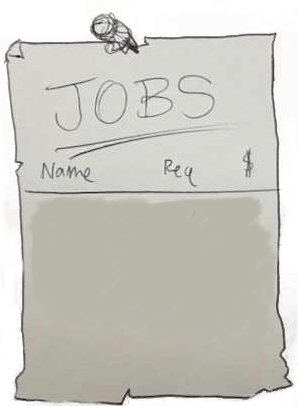 JOBS
Name Req $